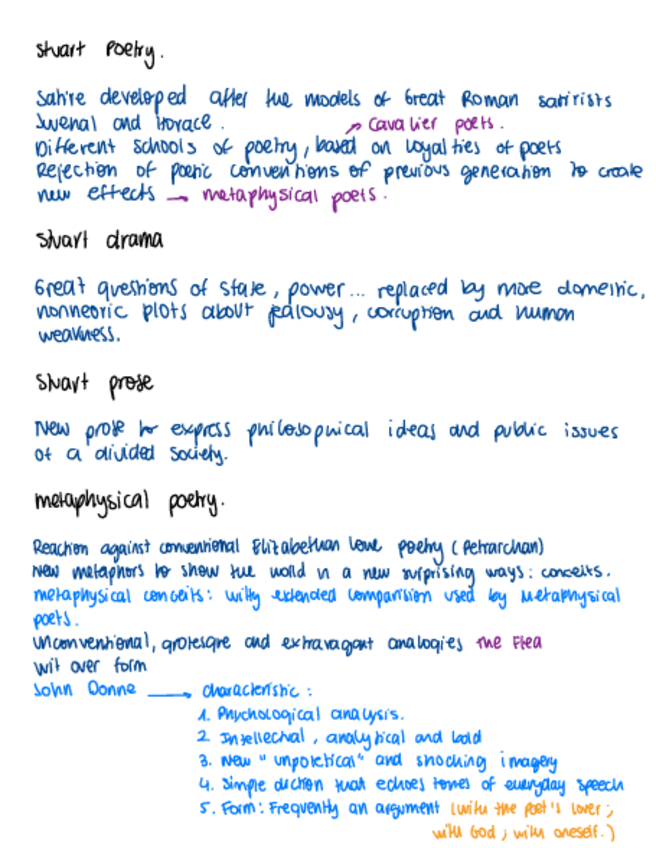 Stuart Poetry.
Satire developed after the models of Great Roman satirists
Juvenal and Horace. ↗ Cavalier poets.
Different schools of poetry, based on loyalties of poets
Rejection of poetic conventions of previous generation to create
new effects → metaphysical poets.
Stuart drama
Great questions of state, power... replaced by more domestic,
nonheoric plots about jealousy, corruption and human
weakness.
Stuart prose
New prose to express philosophical ideas and public issues
of a divided society.
metaphysical poetry.
Reaction against conventional Elizabethan love poetry (Petrarchan)
New metaphors to show the world in a new surprising ways: conceits.
metaphysical conceits: witty extended comparision used by Metaphysical
poets.
Unconventional, grotesque and extravagant analogies The Flea
wit over form
John Donne → characteristic:
1. Phychological analysis.
2 Intellectual, analytical and bold
3. New "unpoletical" and shocking imagery
4. Simple diction that echoes tones of everyday speech
5. Form: Frequently an argument (with the poet's lover;
with God; with oneself.)